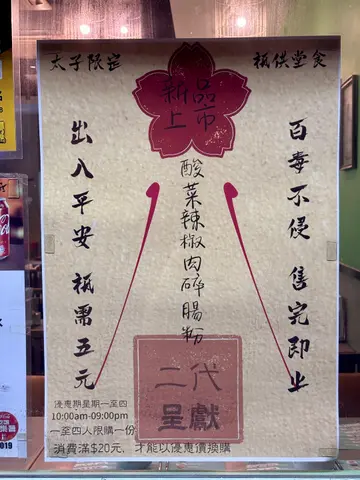 太子限定
祇供堂食
新品
上市
百毒不侵 售完即止
酸菜辣椒肉碎腸粉
出入平安 祇需五元
二代
呈獻
優惠期星期一至四
10:00am-09:00pm
一至四人限購一份
消費滿$20元，才能以優惠價換購